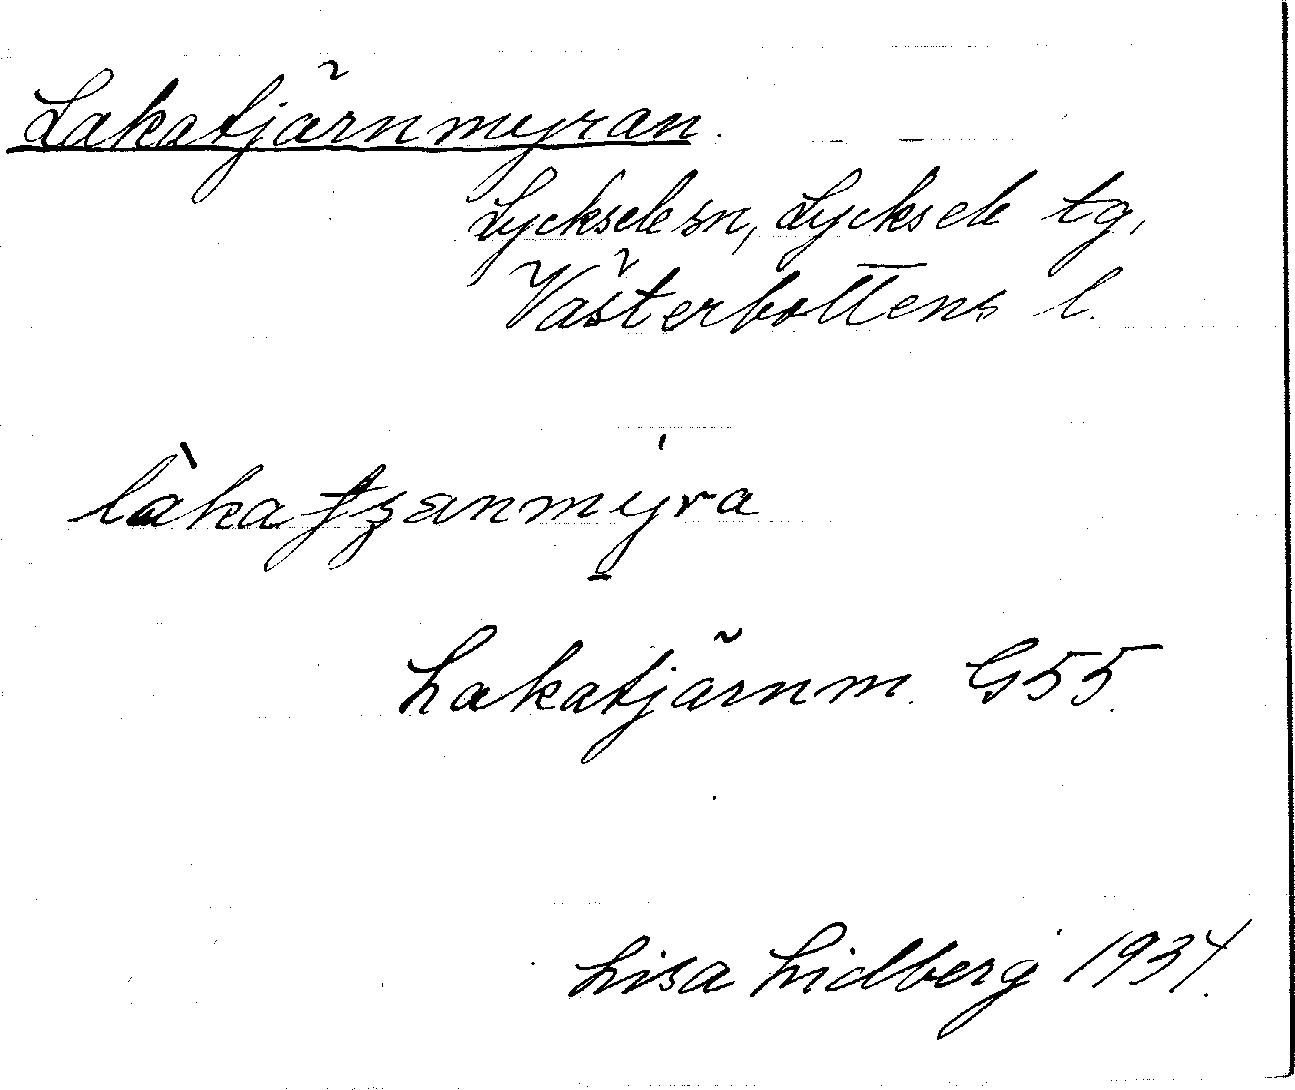 Lakatjärnmyran.
Lycksele sn, Lycksele tg,
Västerbottens l.
làkatʒænmyra
Lakatjärnm. G55.
Lisa Lidberg 1934.